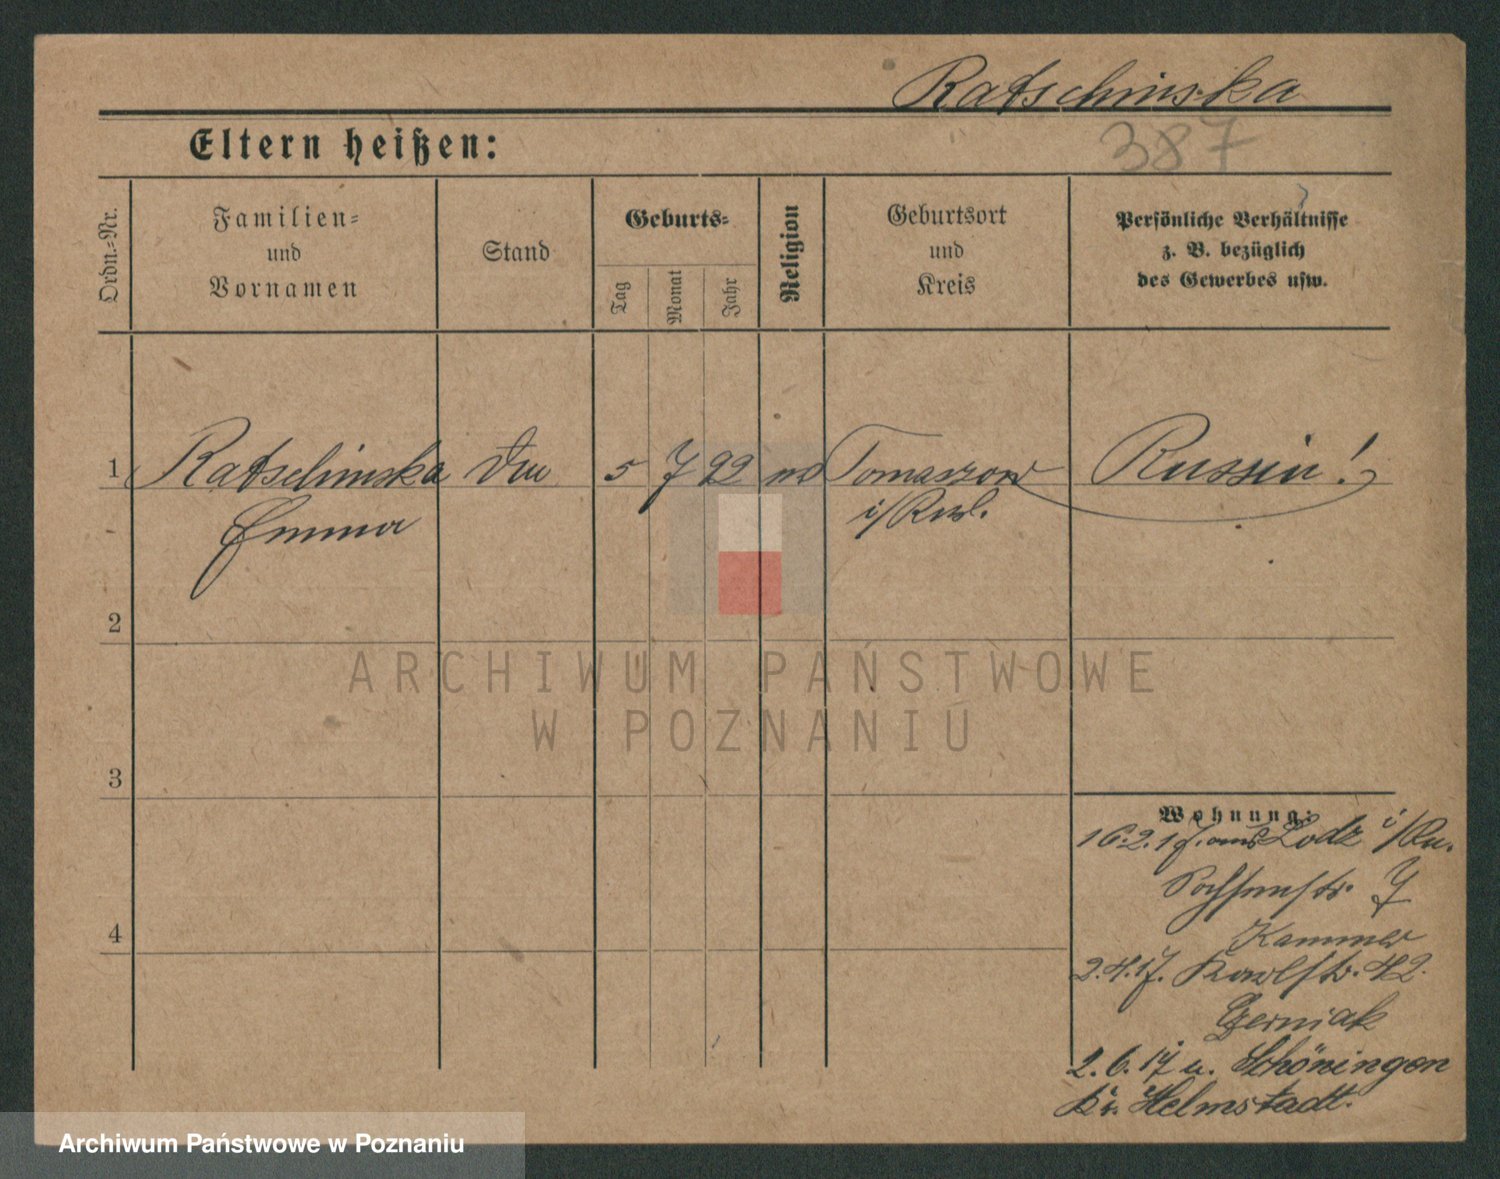 Ratschinska
387
Eltern heißen:
Ordn.-Nr.
Familien-
und
Vornamen
Stand
Geburts-
Tag
Monat
Jahr
Religion
Geburtsort
und
Kreis
Persönliche Verhältnisse
z. B. bezüglich
des Gewerbes usw.
1 Ratschinska 5 7 92 Tomaszow Russin!
Emma i/Rusl.
2
ARCHIWUM PAŃSTWOWE
W POZNANIU
3
Wohnung:
16.2.17. aus Lodz i/Ru.
4
Kammer
2.4.17. 42.
Czerniak
2.6.17 n. Schöningen
Kr. Helmstadt.
Archiwum Państwowe w Poznaniu